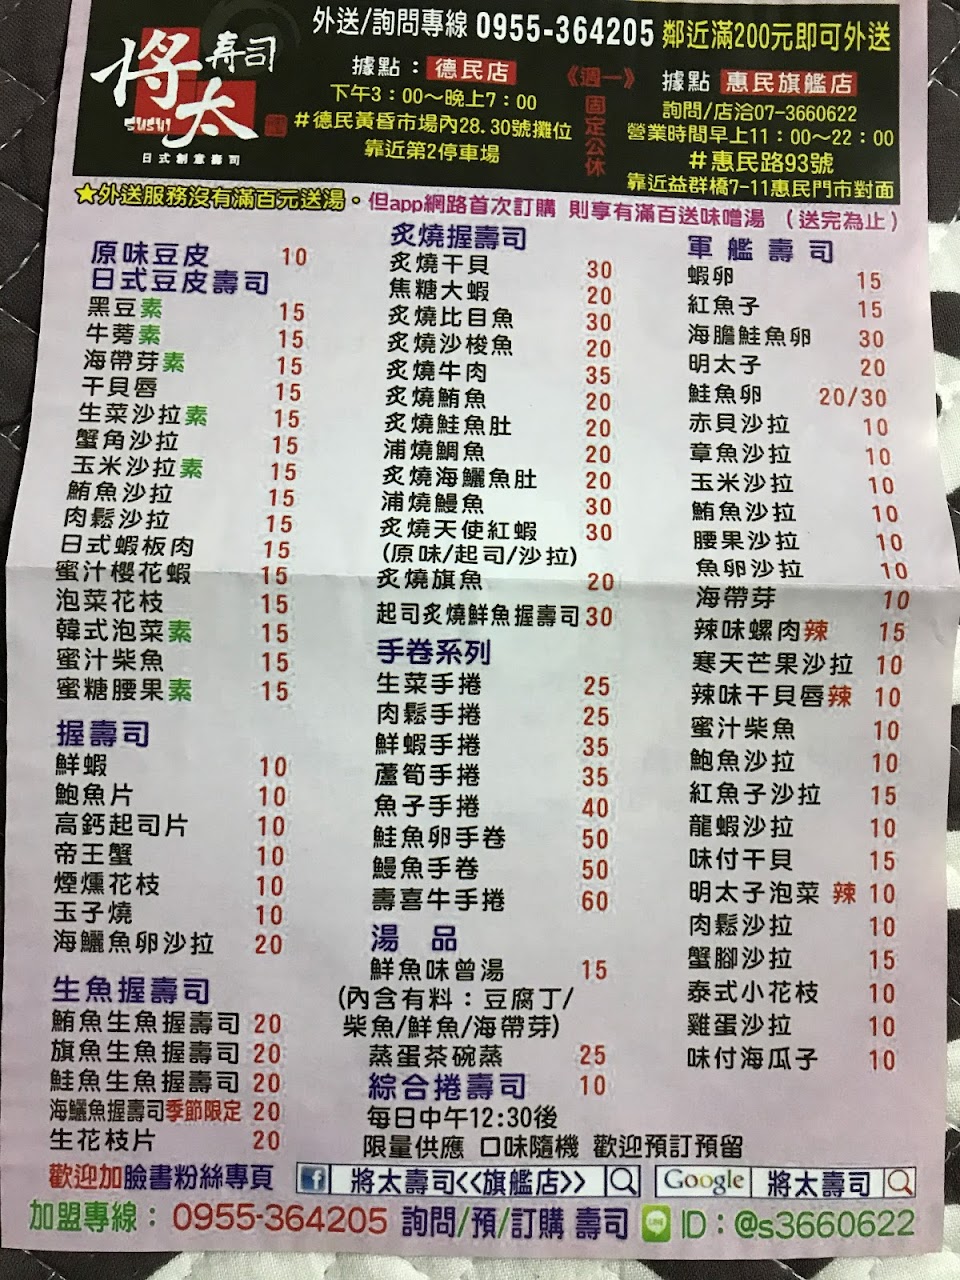 將太壽司
SUSHI
日式創意壽司
外送/詢問專線 0955-364205 鄰近滿200元即可外送
據點：德民店
下午3：00～晚上7：00
#德民黃昏市場內28.30號攤位
靠近第2停車場
《週一》固定公休
據點 惠民旗艦店
詢問/店洽07-3660622
營業時間早上11：00～22：00
#惠民路93號
靠近益群橋7-11惠民門市對面
★外送服務沒有滿百元送湯。但app網路首次訂購 則享有滿百送味噌湯 （送完為止）
原味豆皮 10
日式豆皮壽司
黑豆素 15
牛蒡素 15
海帶芽素 15
干貝唇 15
生菜沙拉素 15
蟹角沙拉 15
玉米沙拉素 15
鮪魚沙拉 15
肉鬆沙拉 15
日式蝦板肉 15
蜜汁櫻花蝦 15
泡菜花枝 15
韓式泡菜素 15
蜜汁柴魚 15
蜜糖腰果素 15
握壽司
鮮蝦 10
鮑魚片 10
高鈣起司片 10
帝王蟹 10
煙燻花枝 10
玉子燒 10
海鱺魚卵沙拉 20
生魚握壽司
鮪魚生魚握壽司 20
旗魚生魚握壽司 20
鮭魚生魚握壽司 20
海鱺魚握壽司季節限定 20
生花枝片 20
炙燒握壽司
炙燒干貝 30
焦糖大蝦 20
炙燒比目魚 30
炙燒沙梭魚 20
炙燒牛肉 35
炙燒鮪魚 20
炙燒鮭魚肚 20
浦燒鯛魚 20
炙燒海鱺魚肚 20
浦燒鰻魚 30
炙燒天使紅蝦 30
(原味/起司/沙拉)
炙燒旗魚 20
起司炙燒鮮魚握壽司 30
手卷系列
生菜手捲 25
肉鬆手捲 25
鮮蝦手捲 35
蘆筍手捲 35
魚子手捲 40
鮭魚卵手卷 50
鰻魚手卷 50
壽喜牛手捲 60
湯 品
鮮魚味曾湯 15
(內含有料：豆腐丁/
柴魚/鮮魚/海帶芽)
蒸蛋茶碗蒸 25
綜合捲壽司 10
每日中午12:30後
限量供應 口味隨機 歡迎預訂預留
軍艦壽司
蝦卵 15
紅魚子 15
海膽鮭魚卵 30
明太子 20
鮭魚卵 20/30
赤貝沙拉 10
章魚沙拉 10
玉米沙拉 10
鮪魚沙拉 10
腰果沙拉 10
魚卵沙拉 10
海帶芽 10
辣味螺肉辣 15
寒天芒果沙拉 10
辣味干貝唇辣 10
蜜汁柴魚 10
鮑魚沙拉 10
紅魚子沙拉 15
龍蝦沙拉 10
味付干貝 15
明太子泡菜 辣 10
肉鬆沙拉 10
蟹腳沙拉 15
泰式小花枝 10
雞蛋沙拉 10
味付海瓜子 10
歡迎加臉書粉絲專頁 f 將太壽司<<旗艦店>> Google 將太壽司
加盟專線：0955-364205 詢問/預/訂購 壽司 LINE ID：@s3660622